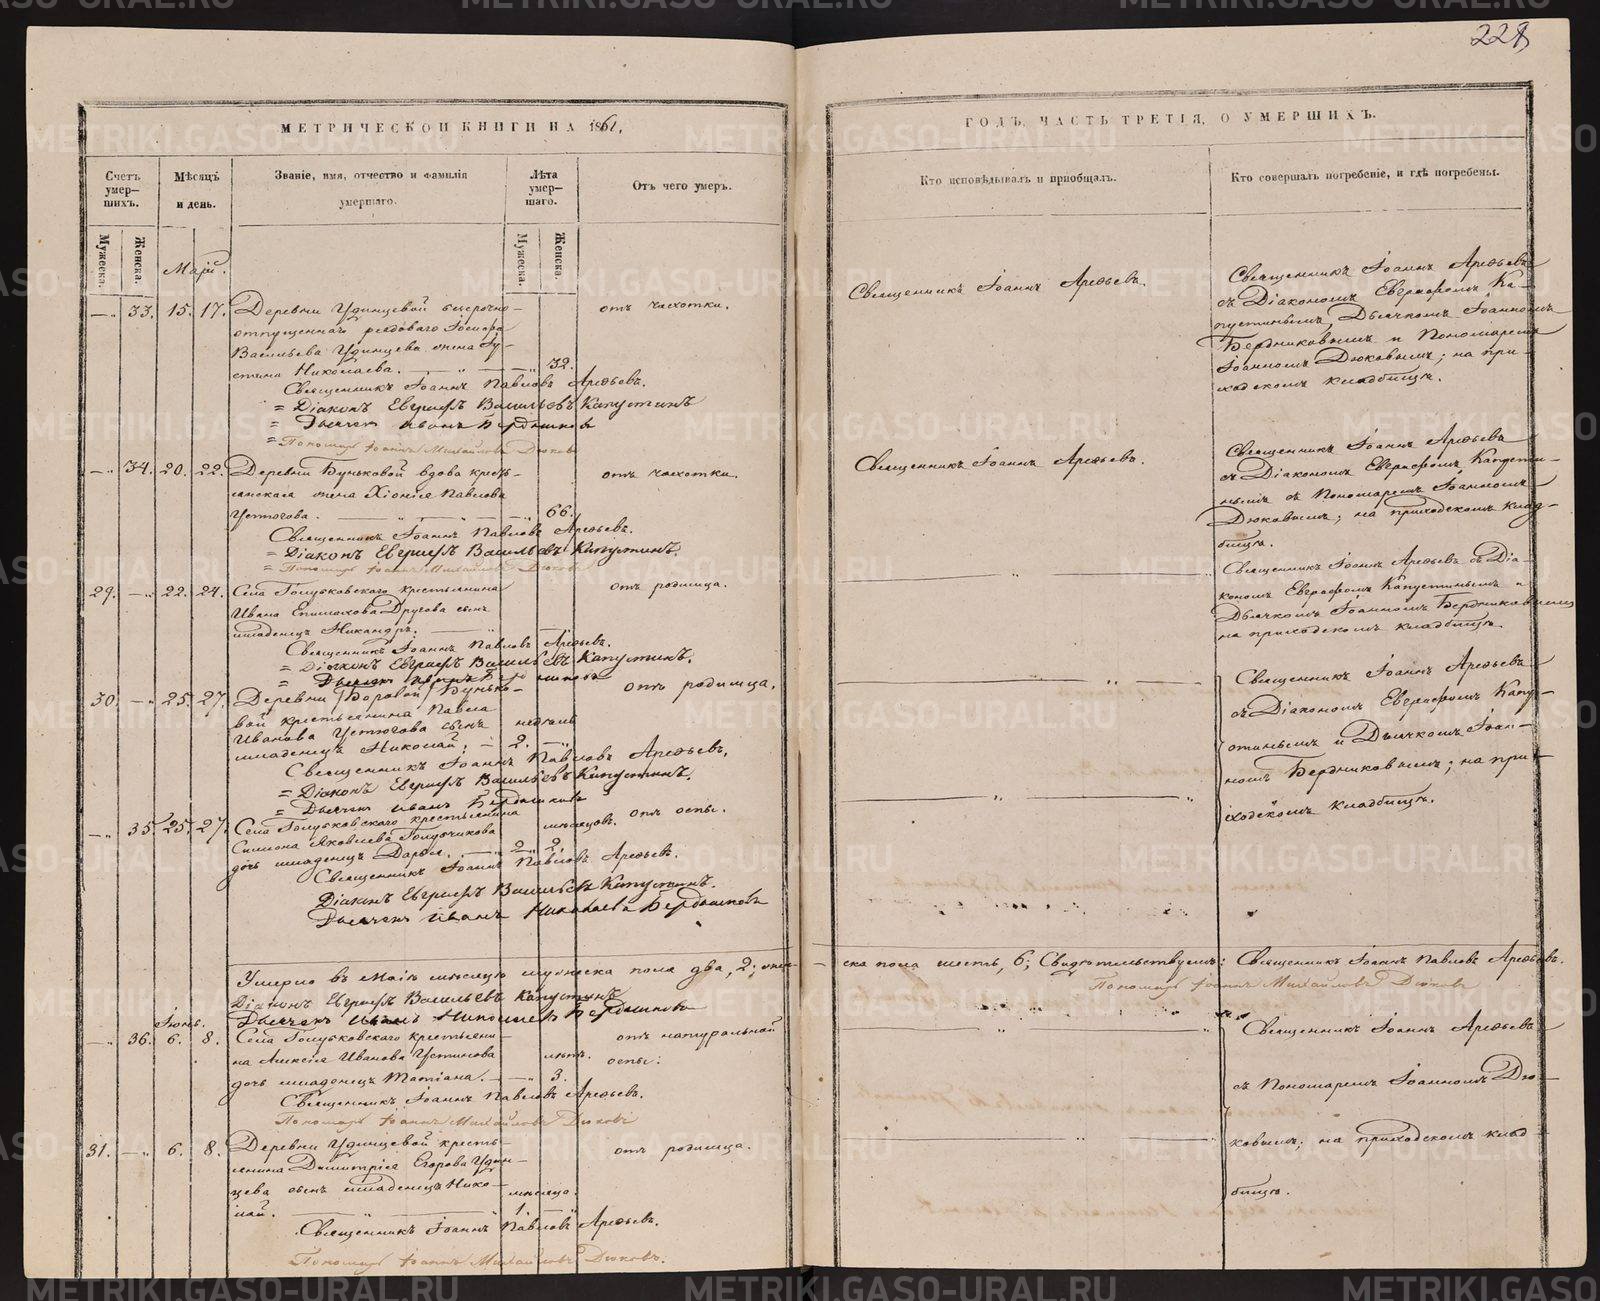 228
МЕТРИЧЕСКОЙ КНИГИ НА 1861,
Счетъ умер-
шихъ.
Мѣсяцъ
и день.
Званіе, имя, отчество и фамилія
умершаго.
Лѣта
умер-
шаго.
Отъ чего умеръ.
Мужеска.
Женска.
Мужеска.
Женска.
Май.
— 33. 15. 17. Деревни Удинцевой безсрочно- отъ чахотки.
отпущеннаго рядоваго
Васильева Удинцева жена Ус-
стина Николаева. 32.
Священникъ Іоаннъ Павловъ Арефьевъ.
= Діаконъ Евграфъ Васильевъ Капустинъ
= Дьячекъ Иванъ Бердниковъ
= Пономарь Іоаннъ Михайловъ Дюковъ
— 34. 20. 22. Деревни Буньковой вдова кресть- отъ чахотки.
янская жена Хіонія Павлова
Устюгова. 66.
Священникъ Іоаннъ Павловъ Арефьевъ.
= Діаконъ Евграфъ Васильевъ Капустинъ.
= Пономарь Іоаннъ Михайловъ Дюковъ
29. — 22. 24. Села Голубковскаго крестьянина отъ родимца.
Ивана Епимахова Другова сынъ
младенецъ Никандръ.
Священникъ Іоаннъ Павловъ Арефьевъ.
= Діаконъ Евграфъ Васильевъ Капустинъ.
= Дьячекъ Иванъ Бердниковъ
30. — 25. 27. Деревни Боровой Бунько- отъ родимца.
вой крестьянина Павла
Иванова Устюгова сынъ недѣль
младенецъ Николай. 2.
Священникъ Іоаннъ Павловъ Арефьевъ.
= Діаконъ Евграфъ Васильевъ Капустинъ.
= Дьячекъ Иванъ Бердниковъ
— 35. 25. 27. Села Голубковскаго крестьянина мѣсяцовъ. отъ оспы.
Симіона Яковлева Голубчикова
дочь младенецъ Дарья. 2.
Священникъ Іоаннъ Павловъ Арефьевъ.
Діаконъ Евграфъ Васильевъ Капустинъ.
Дьячекъ Иванъ Николаевъ Бердниковъ
Умерло въ Маіѣ мѣсяцѣ мужеска пола два, 2; жен-
Діаконъ Евграфъ Васильевъ Капустинъ
Дьячекъ Иванъ Николаевъ Бердниковъ
Іюнь.
— 36. 6. 8. Села Голубковскаго крестьяни- отъ натуральной
на Алексія Иванова Устинова лѣтъ. оспы.
дочь младенецъ Татіана. 3.
Священникъ Іоаннъ Павловъ Арефьевъ.
Пономарь Іоаннъ Михайловъ Дюковъ
31. — 6. 8. Деревни Удинцевой кресть- отъ родимца.
янина Димитрія Егорова Удин-
цева сынъ младенецъ Нико- мѣсяца.
лай. 1.
Священникъ Іоаннъ Павловъ Арефьевъ.
Пономарь Іоаннъ Михайловъ Дюковъ.
ГОДЪ, ЧАСТЬ ТРЕТІЯ, О УМЕРШИХЪ.
Кто исповѣдывалъ и пріобщалъ.
Кто совершалъ погребеніе, и гдѣ погребены.
Священникъ Іоаннъ Арефьевъ.
Священникъ Іоаннъ Арефьевъ
съ Діакономъ Евграфомъ Ка-
пустинымъ, Дьячкомъ Іоанномъ
Бердниковымъ и Пономаремъ
Іоанномъ Дюковымъ; на при-
ходскомъ кладбищѣ.
Священникъ Іоаннъ Арефьевъ.
Священникъ Іоаннъ Арефьевъ
съ Діакономъ Евграфомъ Капусти-
нымъ съ Пономаремъ Іоанномъ
Дюковымъ; на приходскомъ клад-
бищѣ.
Священникъ Іоаннъ Арефьевъ съ Діа-
кономъ Евграфомъ Капустинымъ и
Дьячкомъ Іоанномъ Бердниковымъ
на приходскомъ кладбищѣ.
Священникъ Іоаннъ Арефьевъ
съ Діакономъ Евграфомъ Капу-
стинымъ и Дьячкомъ Іоан-
номъ Бердниковымъ; на при-
ходскомъ кладбищѣ.
ска пола шесть, 6; Свидѣтельствуемъ: Священникъ Іоаннъ Павловъ Арефьевъ.
Пономарь Іоаннъ Михайловъ Дюковъ
Священникъ Іоаннъ Арефьевъ
съ Пономаремъ Іоанномъ Дю-
ковымъ; на приходскомъ клад
бищѣ.
METRIKI.GASO-URAL.RU